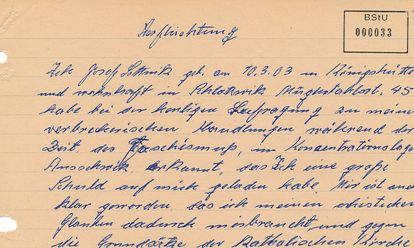 BStU
000033
Verpflichtung
Ich Josef Sittnik geb. am 10.3.03 in Königshütte
und wohnhaft in 45
habe bei der heutigen Befragung zu meine
verbrecherischen Handlungen während der
Zeit des Faschismuß, im Konzentrationslage
Auschwitz erkannt, das Ich eine große
Schuld auf mich geladen habe. Mir ist nun
klar geworden, das ich meinen christlichen
Glauben dadurch misbraucht und gegen
die Grundsätze der Katholischen Kirche